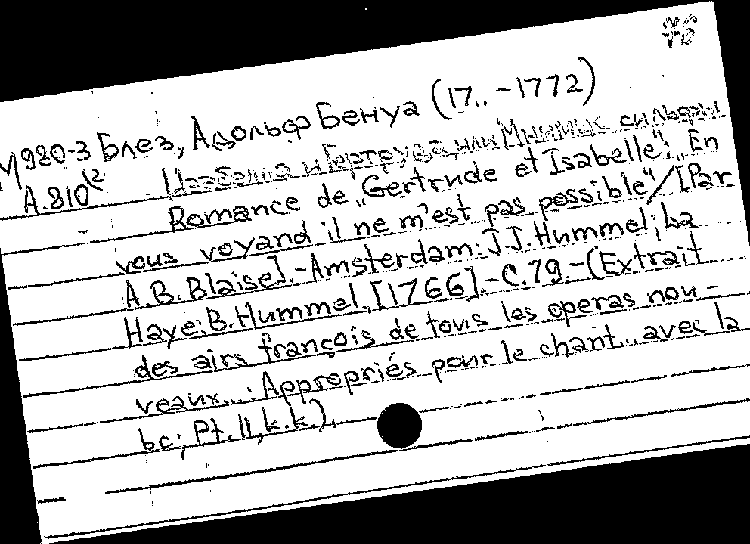 М980-3 Блез, Адольф Бенуа (17.. -1772)
А.810(2 Изабелла и Гертруда, или Мнимые сильфы
Romance de „Gertrude et Isabelle": „En
vous voyand il ne m'est pas possible"/[Par
A.B. Blaise]. - Amsterdam: J.J. Hummel; La
Haye: B. Hummel, [1766]. - C. 79. - (Extrait
des airs françois de tous les operas nou-
veaux...: Appropriés pour le chant.. avec la
bc; Pt. II, k.k.).